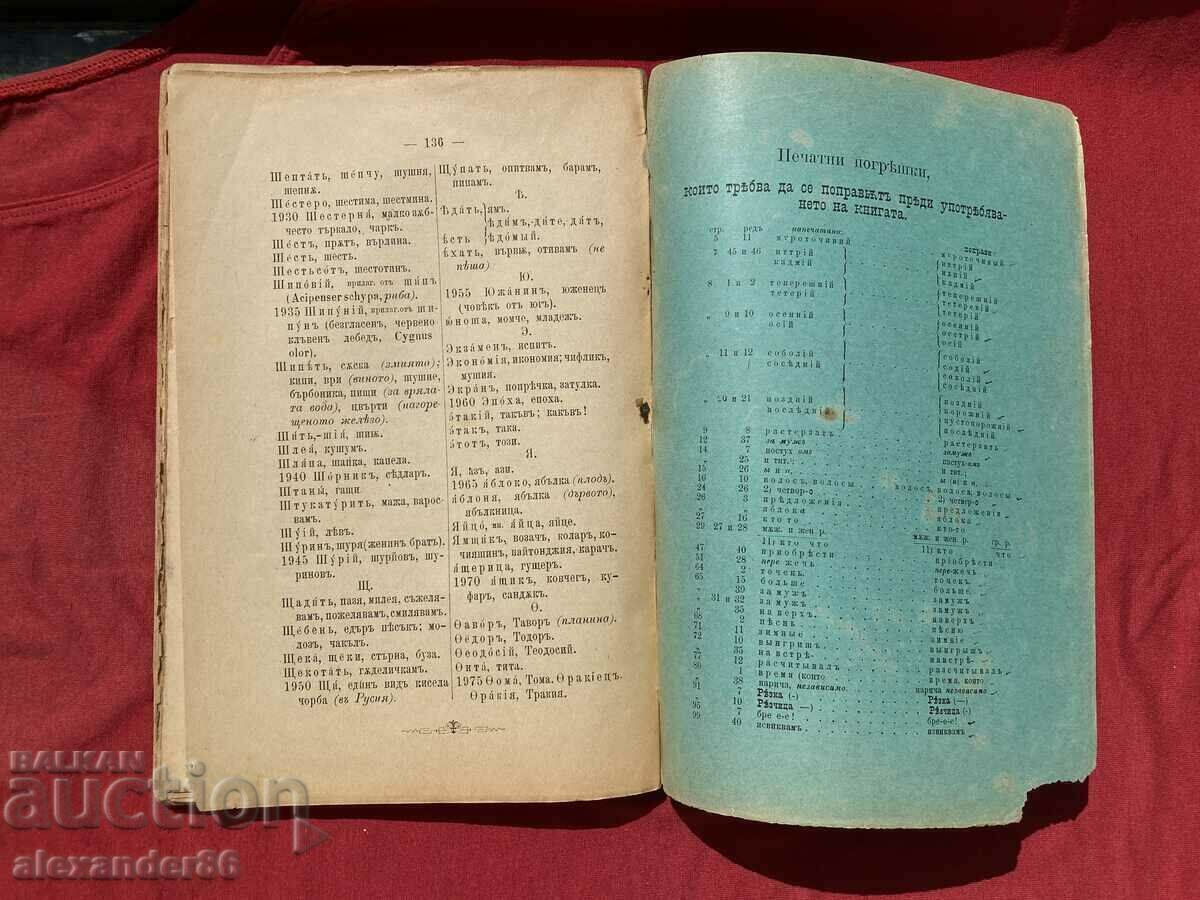 — 136 —
Шептáть, шéпчу, шушня,
шепнѫ.
Шéстеро, шестима, шестмина.
1930 Шестернá, малко зѫб-
често търкало, чаркъ.
Шéстъ, прѫтъ, върлина.
Шéсть, шесть.
Шестьсóтъ, шестотин.
Шипóвій, прилаг. отъ шипъ
(Acipenser schypa, риба).
1935 Шипýній, прилаг. отъ ши-
пýн (безгласен, червено
клъвен лебед, Cygnus
olor).
Шипѣть, съска (змията);
кипи, ври (виното), шушне,
бърбоника, пищи (за вряла-
та вода), цвърти (нагоре-
щеното желѣзо).
Шить,-шiя, шиѭ.
Шлея, кушум.
Шляпа, шапка, капела.
1940 Шóрникъ, сѣдлар.
Штаны́, гащи.
Штукатýрить, мажа, варос-
вам.
Шýій, лѣвъ.
Шýринъ, шуря(женин братъ).
1945 Шýрій, шурйовъ, шу-
риновъ.
Щ.
Щадúть, пазя, милея, съжеля-
вамъ, пожелявамъ, смилявамъ.
Щéбень, едър пѣсък; мо-
лозъ, чакъл.
Щекá, щéки, стърна, буза.
Щекотáть, гѫделичкам.
1950 Щá, едѝнъ видъ кисела
чорба (въ Русия).
Щýпать, опитвамъ, барам,
пипам.
Ѣ.
Ѣдáть, ямъ.
ѣдимъ,-дите, дятъ,
ѣсть
ѣдóмый.
ѣхать, вървѭ, отивам (не
пѣша)
Ю.
1955 Южáнин, юженецъ
(човѣкъ от югъ).
ю́ноша, момче, младеж.
Э.
Экзáмен, испитъ.
Эконóмія, икономия; чифлик,
мушия.
Экрáн, попрѣчка, затулка.
1960 Эпóха, епоха.
э́такій, такъвъ; какъвъ!
э́такъ, така.
э́тотъ, този.
Я.
Я, ѣзъ, ази.
1965 я́блоко, ябълка (плодъ).
я́блоня, ябълка (дървото),
ябълкница.
Яйцó, мн. я́йца, яйце.
Ямщи́къ, возачъ, коларъ, ко-
чияшинъ, пайтонджия, карачъ.
я́щерица, гущеръ.
1970 я́щикъ, ковчегъ, ку-
фаръ, сандѫкъ.
Ѳ.
Ѳавóръ, Таворъ (планина).
Ѳёдоръ, Тодоръ.
Ѳеодóсій, Теодосий.
Ѳитá, тита.
1975 Ѳомá, Тома. Ѳракіецъ.
Ѳрáкія, Тракия.
Печатни погрѣшки,
които трѣбва да се поправѭтъ прѣди употрѣбява-
нето на книгата.
стр. редъ напечатано: поправи
5 11 мѵроточивий мѵроточивый
7 45 и 46 иттрій иттрій
кадмій илній
кадмій
8 1 и 2 теперешній теперешній
тетерій тетерекій
тетерій
„ 9 и 10 осенній осенній
осій осетрій
осій
„ 11 и 12 соболій соболій
сосѣдній содій
соколій
сосѣдній
„ 20 и 21 поздній поздній
послѣдній порожній
пустопорожній
послѣдній
9 8 растерзать растерзать
12 37 за мужъ замужъ
14 7 постух омъ пастух-омъ
„ 25 и тит.: и тп.;
15 26 м и о. м (н) и о.
16 10 волосъ, волосы волосъ, волоса, волосы
24 26 2) четвер-о 2) четвер-о
26 3 прѣдложенія предложенія
„ яблока яблока
27 16 кто то кто-то
29 27 и 28 мѫж. и жен р. мѫж. и жен р. ср. р.
11) кто что 11) кто что
47 40 приобрѣсти пріобрѣсти
51 28 пере жечь пере-жечь
64 2 точень. точекъ.
65 15 больше больше.
„ 39 за мужъ замужъ
„ 31 и 32 замужъ замужъ
„ 35 на верхъ. наверхъ
68 2 пѣснь пѣсню
71 11 зимные зимніе
72 10 выигриш. выигрышъ
„ 35 на встрѣ- навстрѣ-
77 12 расчитывалъ расчитывалъ
80 1 время (които время, които
91 нарича, независимо. нарича независимо
7 Рѣзка (-) Рѣзка (—)
„ 10 Рѣзчица —) Рѣзчица (-)
95 7 бре е-е! бре-е-е!
99 40 извиквамъ извиквамъ
BALKAN
auction
alexander86